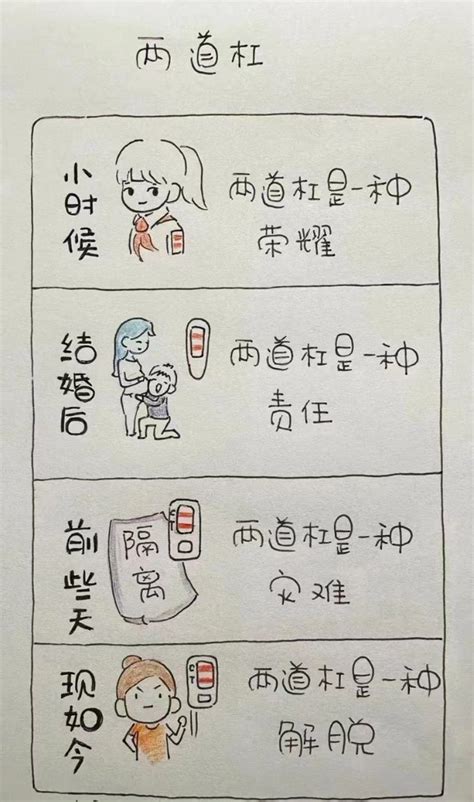 两道杠
小时候
两道杠是一种
荣耀
结婚后
两道杠是一种
责任
前些天
隔离
C
T
两道杠是一种
灾难
现如今
C
T
两道杠是一种
解脱